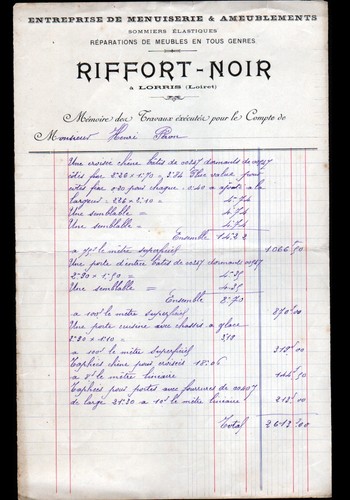 ENTREPRISE DE MENUISERIE & AMEUBLEMENTS
SOMMIERS ÉLASTIQUES
RÉPARATIONS DE MEUBLES EN TOUS GENRES
RIFFORT-NOIR
à LORRIS (Loiret)
Mémoire des Travaux exécutés pour le Compte de
Monsieur Henri
Une croisée chêne batis de 00 dormants de
côtés fixe 2.20 × 1.70 = 3.74 Plus value pour
côtés fixe 0.20 pour chaque 0.40 a ajouté a la
largeur = 2.10 = 4.74
Une semblable = 4.74
Une semblable = 4.74
Ensemble 14.22
a 75f le mètre superficiel 1066f50
Une porte d'entrée batis de dormants
= 4.35
Une semblable = 4.35
Ensemble 8.70
a 100f le mètre superficiel 870f00
Une porte cuisine avec chassis a glace
a 100f le mètre superficiel
chêne pour croisées 18.06
a 8f le mètre lineaire 144f50
pour portes avec fourrures de
de large 21.30 a 10f le mètre lineaire 213f00
Total 2612f00